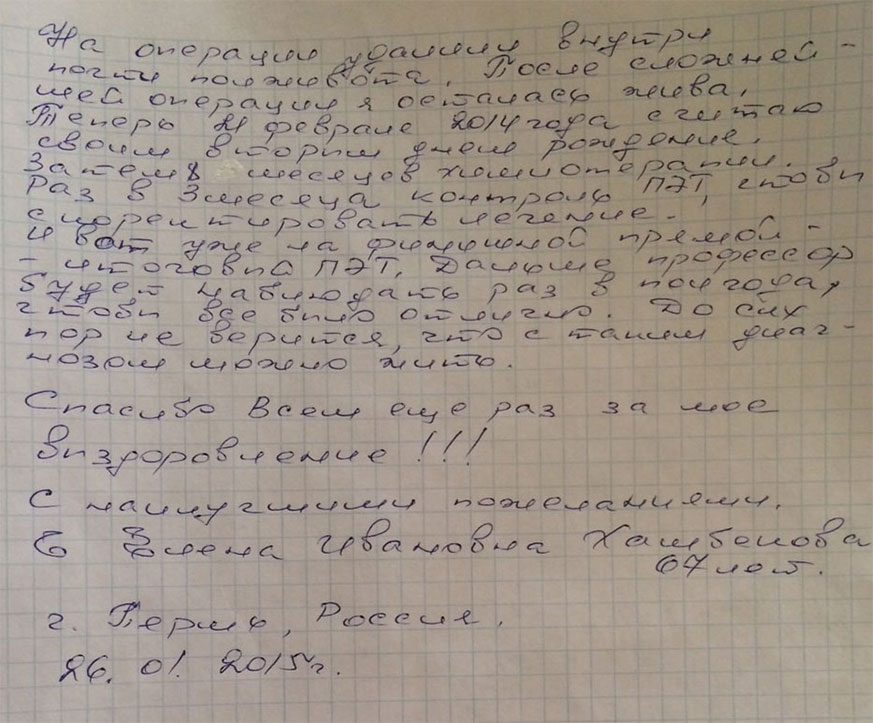 На операции удалили внутри
почти полживота. После сложней-
шей операции я осталась жива.
Теперь 21 февраля 2014 года считаю
своим вторым днем рождения.
Затем 8 месяцев химиотерапии.
Раз в 3 месяца контроль ПЭТ, чтобы
скоректировать лечение.
И вот уже на финишной прямой -
- итоговый ПЭТ. Дальше профессор
будет наблюдать раз в полгода,
чтобы все было отлично. До сих
пор не верится, что с таким диаг-
нозом можно жить.
Спасибо Всем еще раз за мое
выздоровление!!!
С наилучшими пожеланиями.
Елена Ивановна
67 лет.
г. Пермь, Россия.
26. 01. 2015 г.